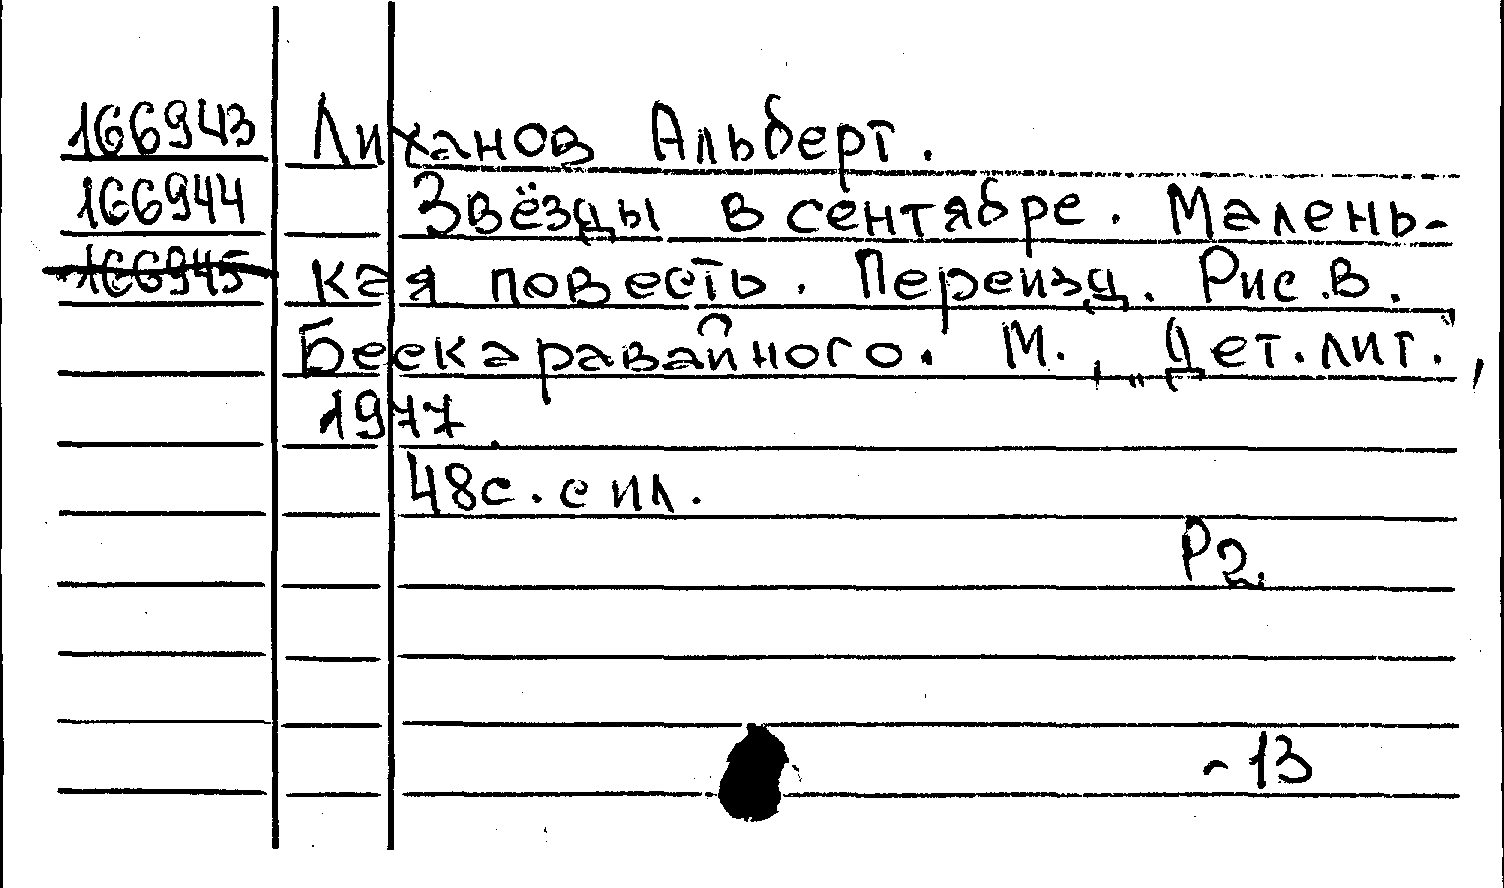 166943 Лиханов Альберт.
166944 Звёзды в сентябре. Малень-
166945 кая повесть. Переизд. Рис. В.
Бескаравайного. М., „Дет. лит.",
1977.
48с. с ил.
Р2.
-13